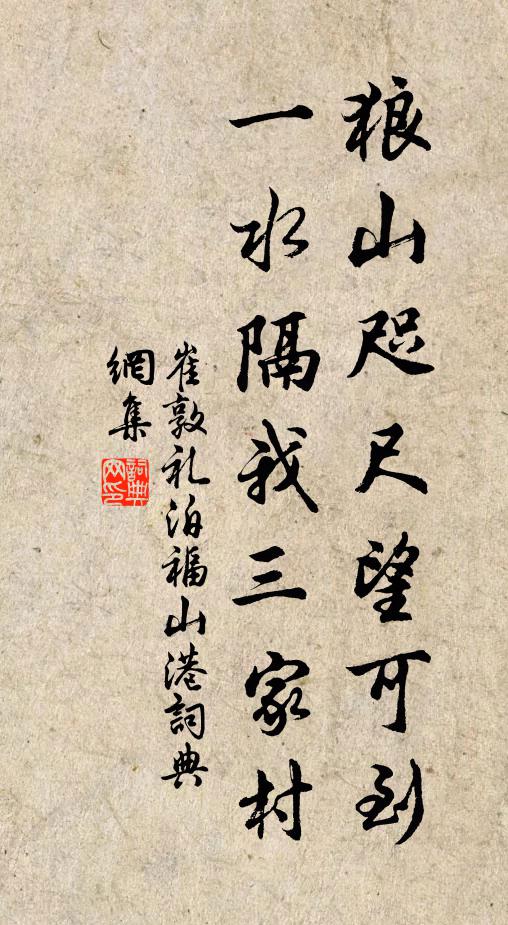 狼山咫尺望可到
一水隔我三家村
崔敦礼泊福山港詞典
網集
詞典網印